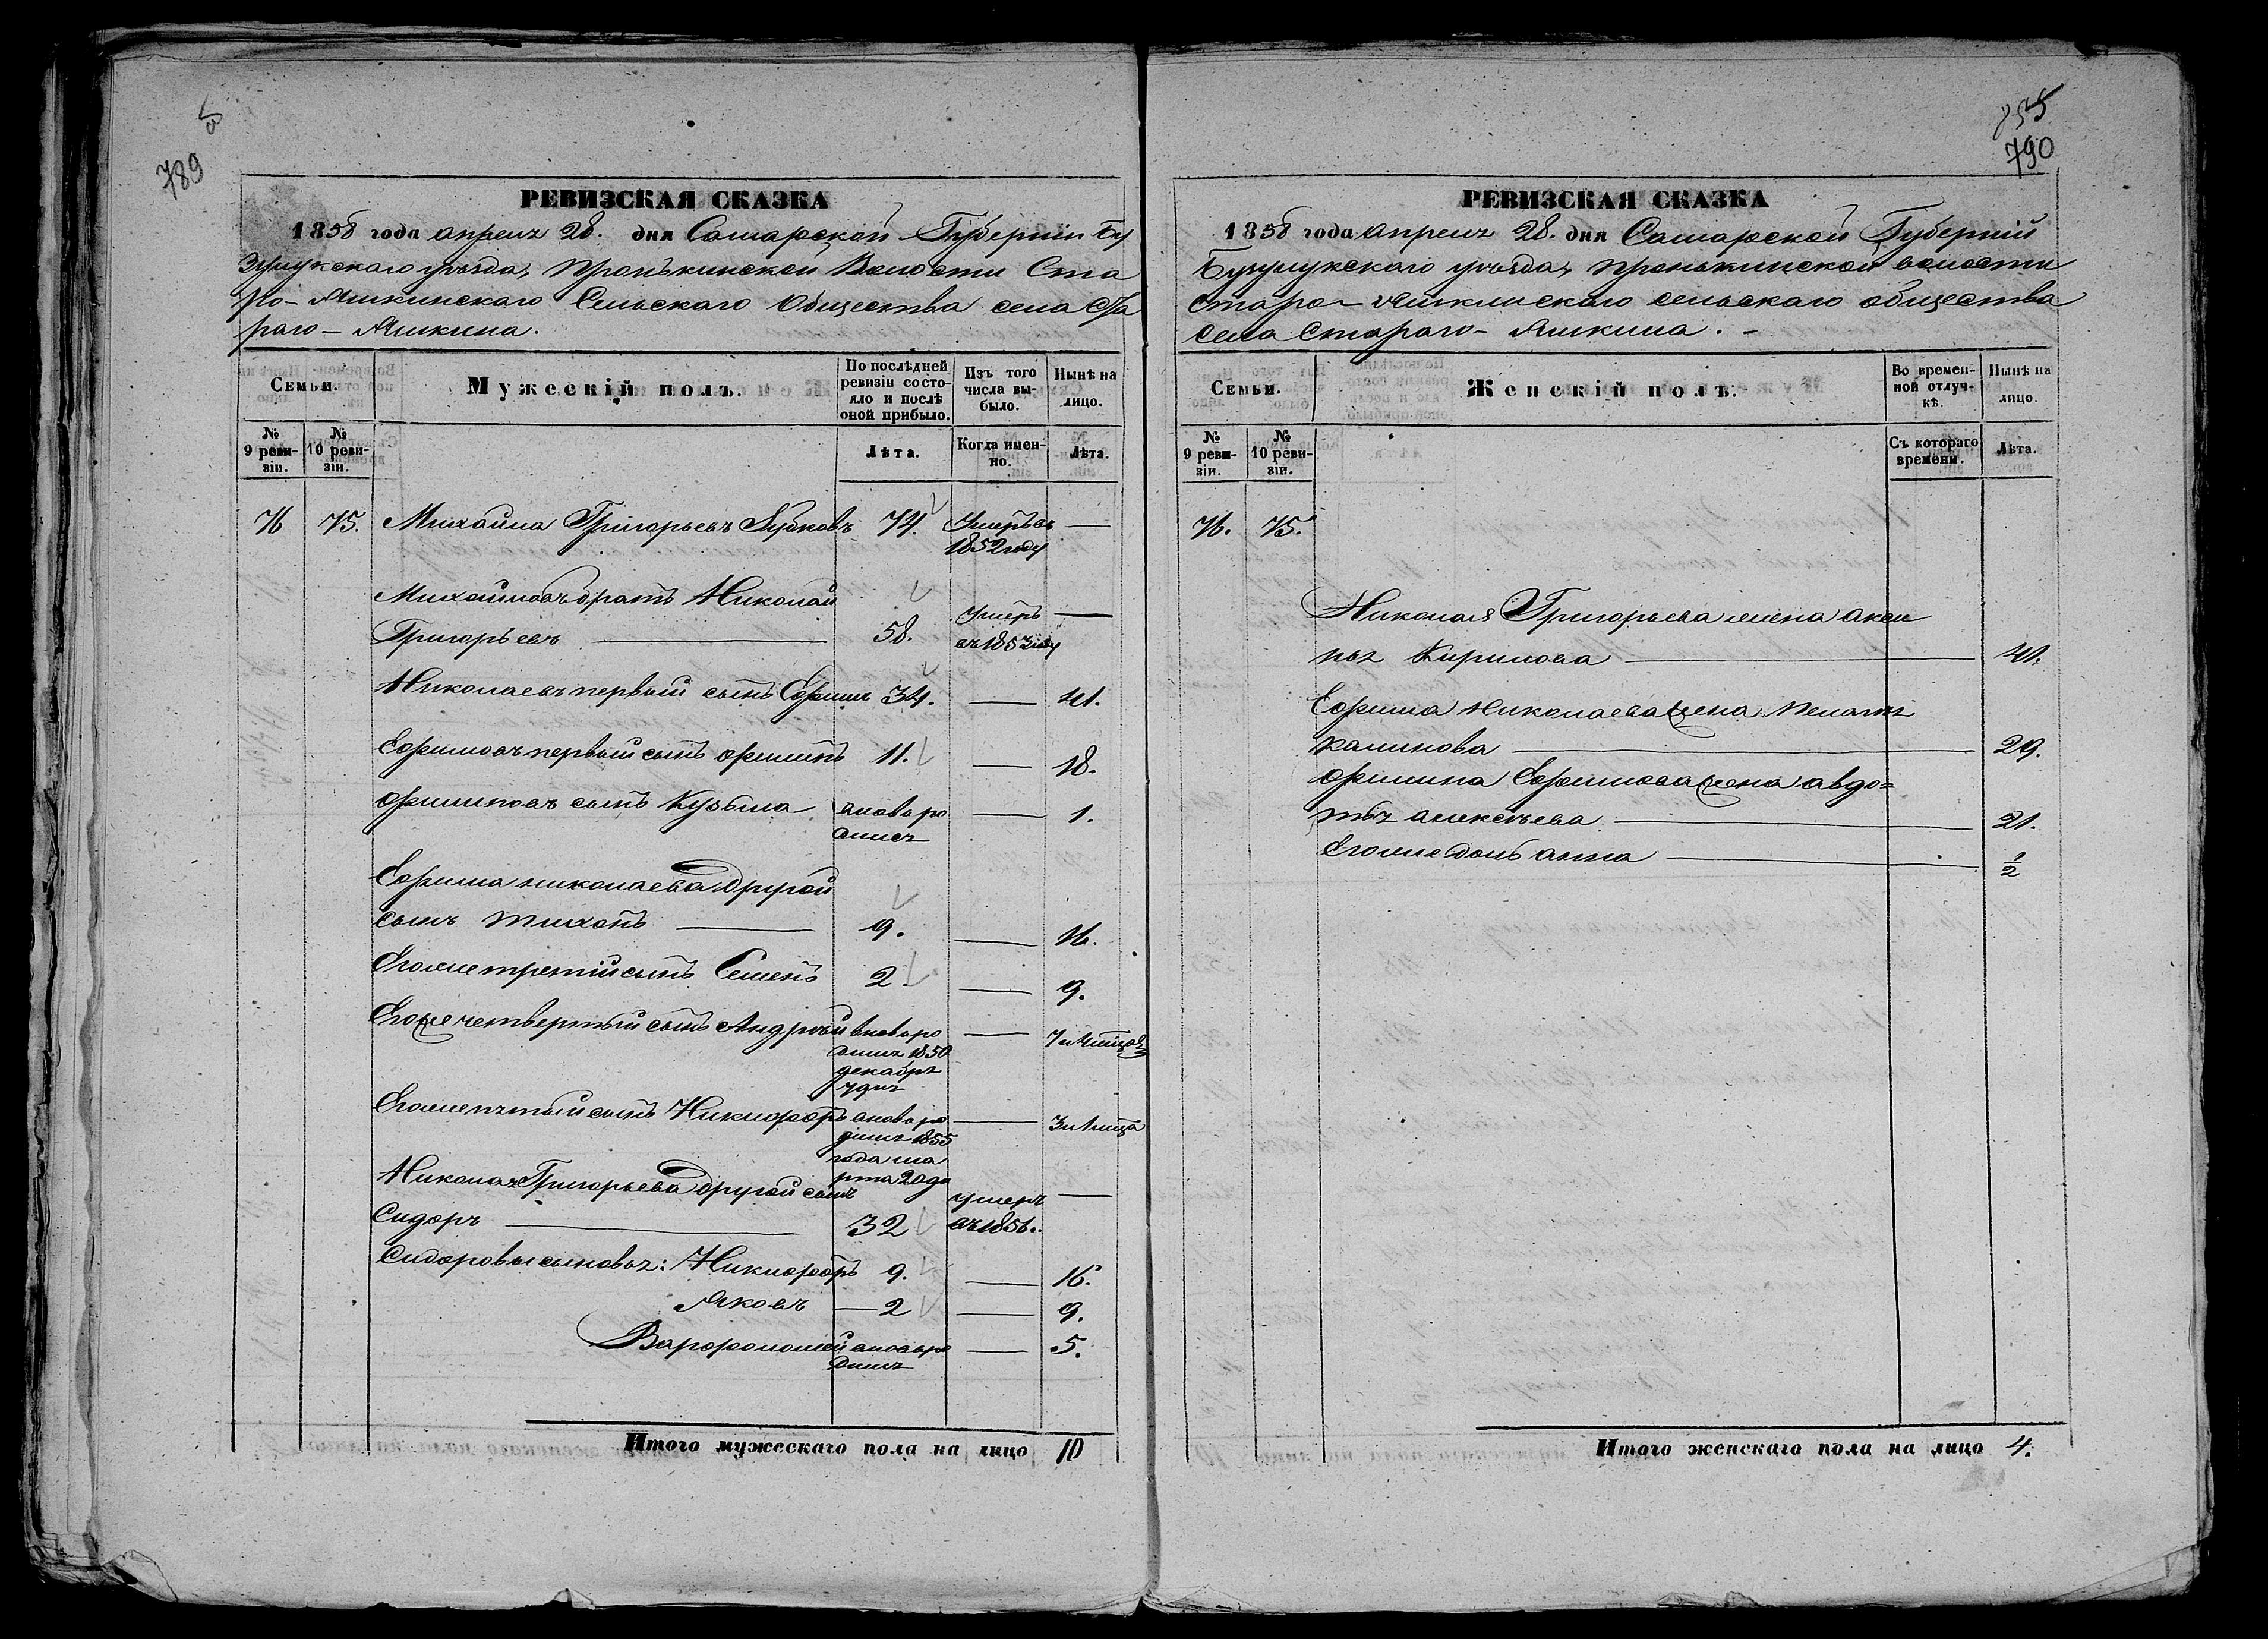 789
РЕВИЗСКАЯ СКАЗКА
1858 года апреля 28. дня Самарской Губернiи Бу
зулукскаго уѣзда, Пронькинской Волости Ста
ро-Яшкинскаго Сельскаго Общества села Ста
раго-Яшкина.
Семьи.
Мужескій полъ.
По послѣдней ревизіи состояло и послѣ оной прибыло.
Изъ того числа выбыло.
Нынѣ на лицо.
№ 9 ревизіи.
№ 10 ревизіи.
Лѣта.
Когда именно.
Лѣта.
76 75. Михайла Григорьевъ Зубковъ 74. Умеръ въ —
1852 году
Михайловъ братъ Николай
Григорьевъ — 58. Умеръ —
въ 1853 году
Николаевъ первый сынъ Ефимъ 34. — 41.
Ефимовъ первый сынъ филипъ 11. — 18.
филиповъ сынъ Кузьма вновь ро — 1.
дился
Ефима николаева другой
сынъ тихонъ — 9. — 16.
Егоже третiй сынъ Семенъ 2. — 9.
Егоже четвертый сынъ Андрей вновь ро —
дился 1850
декабря
Егоже пятый сынъ Никифоръ вновь ро —
дился 1855
года ма
рта 20 дн
Николая Григорьева другой сынъ
Сидоръ — 32 умеръ —
въ 1856.
Сидоровы сыновья: Никифоръ 9. — 16.
Яковъ — 2 — 9.
Варфоломей вновь ро — 5.
дился
Итого мужескаго пола на лицо 10
790
РЕВИЗСКАЯ СКАЗКА
1858 года апреля 28. дня Самарской Губернiй
Бузулукскаго уѣзда, Пронькинской волости
Старо-Яшкинскаго сельскаго общества
села Стараго-Яшкина. -
Семьи.
Женскій полъ.
Во временной отлучкѣ.
Нынѣ на лицо.
№ 9 ревизіи.
№ 10 ревизіи.
Съ котораго времени.
Лѣта.
76. 75.
Николая Григорьева жена акси
нья Кирилова — 41.
Ефима Николаева жена Пелагея
калинова — 29.
филипа Ефимова жена авдо=
тья алексѣева — 21.
Егоже дочь анна — 1/2
Итого женскаго пола на лицо 4.